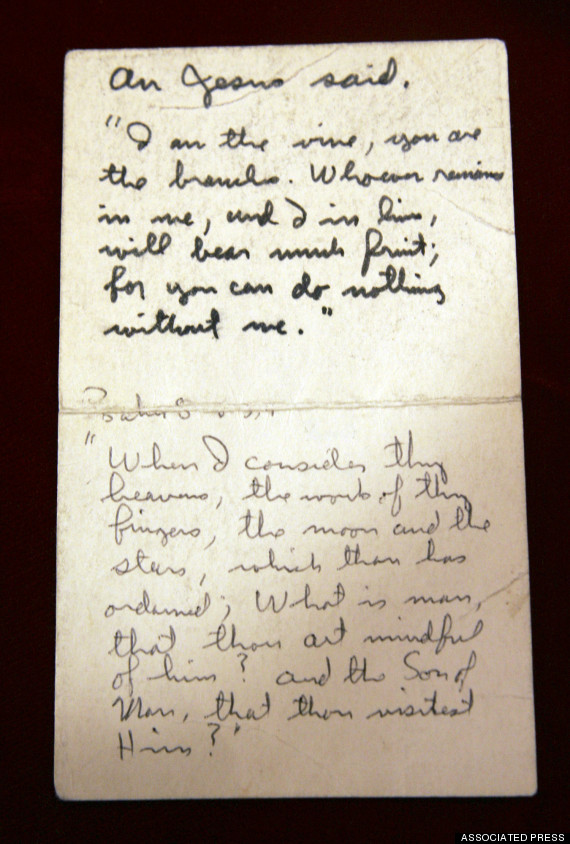 An Jesus said.
"I am the vine, you are
the branches. Whoever remains
in me, and I in him,
will bear much fruit;
for you can do nothing
without me."
Psalm 8 v 3,4
"When I consider thy
heavens, the work of thy
fingers, the moon and the
stars, which thou has
ordained; What is man,
that thou art mindful
of him? and the Son of
Man, that thou visitest
Him?"
ASSOCIATED PRESS